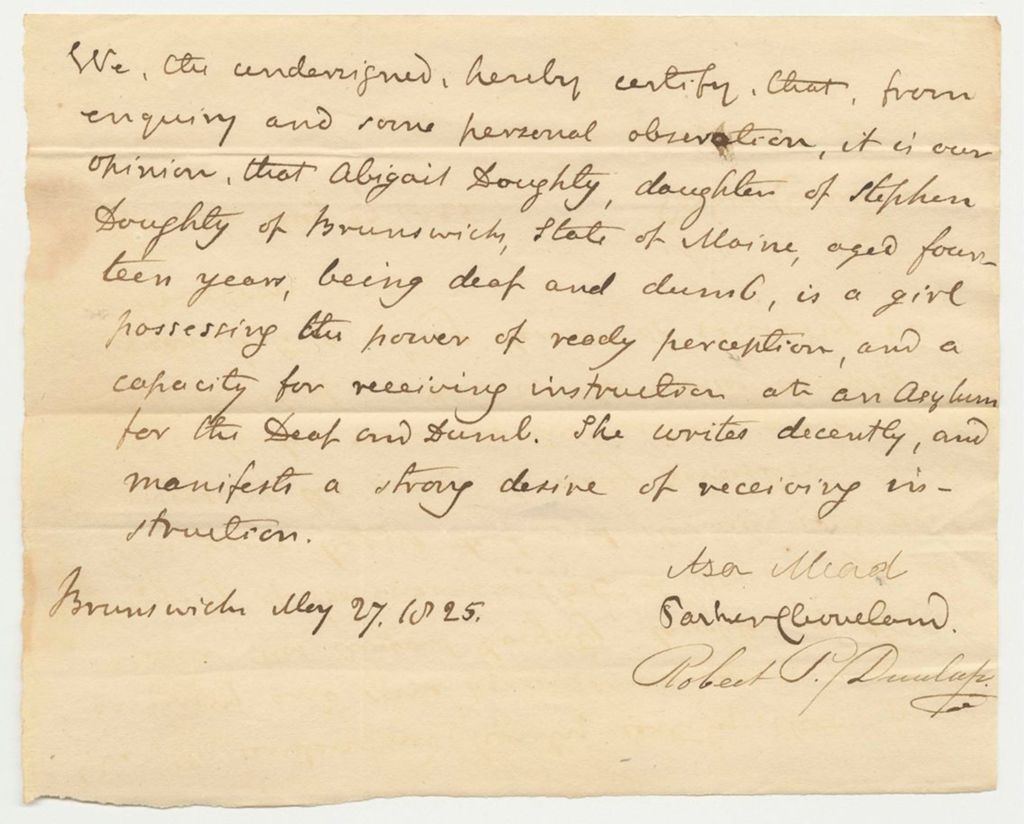 We, the undersigned, hereby certify, that, from
enquiry and some personal observation, it is our
opinion, that Abigail Doughty, daughter of Stephen
Doughty of Brunswick, State of Maine, aged four-
teen years, being deaf and dumb, is a girl
possessing the power of ready perception, and a
capacity for receiving instruction at an Asylum
for the Deaf and Dumb. She writes decently, and
manifests a strong desire of receiving in-
struction.
Asa Mead
Brunswick May 27. 1825.
Parker Cleaveland.
Robert P. Dunlap.